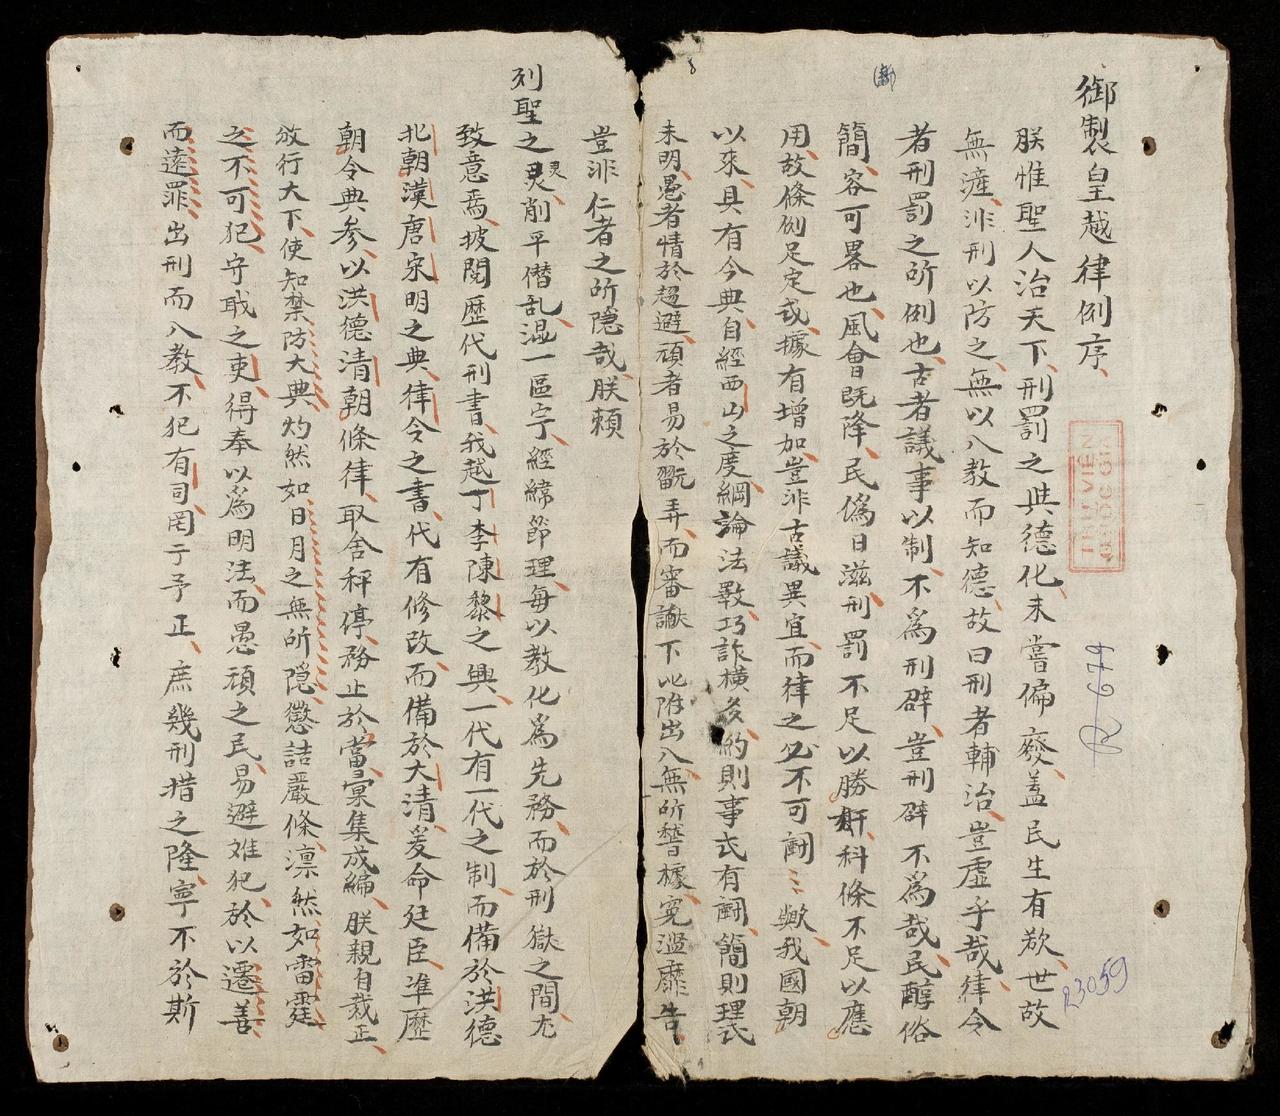 御製皇越律例序
朕惟聖人治天下刑罰之與德化未嘗偏廢蓋民生有欲世故
無滻非刑以防之無以入教而知德故曰刑者輔治豈虛乎哉律令
者刑罰之所例也古者議事以制不為刑辟豈刑辟不為哉民醇俗
簡容可畧也風會既降民偽日滋刑罰不足以勝奸科條不足以應
用故條例足定或據有增加豈非古議異宜而律之必不可闕〻歟我國朝
以來具有令典自經西山之度綱論法斁巧詐橫多約則事或有闕簡則理或
未明愚者情於趨避頑者易於翫弄而審讞下比附出入無所諬據寃濫靡告
豈非仁者之所隱哉朕賴
列聖之灵削平僭乱混一區宇經緯節理每以教化為先務而於刑獄之間尤
致意焉披閱歷代刑書我越丁李陳黎之興一代有一代之制而備於洪德
北朝漢唐宋明之典律令之書代有修改而備於大清爰命廷臣准歷
朝令典参以洪德清朝條律取舍秤停務止於當彙集成編朕親自裁正
放行天下使知禁防大典灼然如日月之無所隱懲詰嚴條凛然如雷霆
之不可犯守戢之吏得奉以為明法而愚頑之民易避难犯於以遷善
而遠罪出刑而入教不犯有司罔于予正庶幾刑措之隆寧不於斯
新
THU VIEN
R 679
R3059